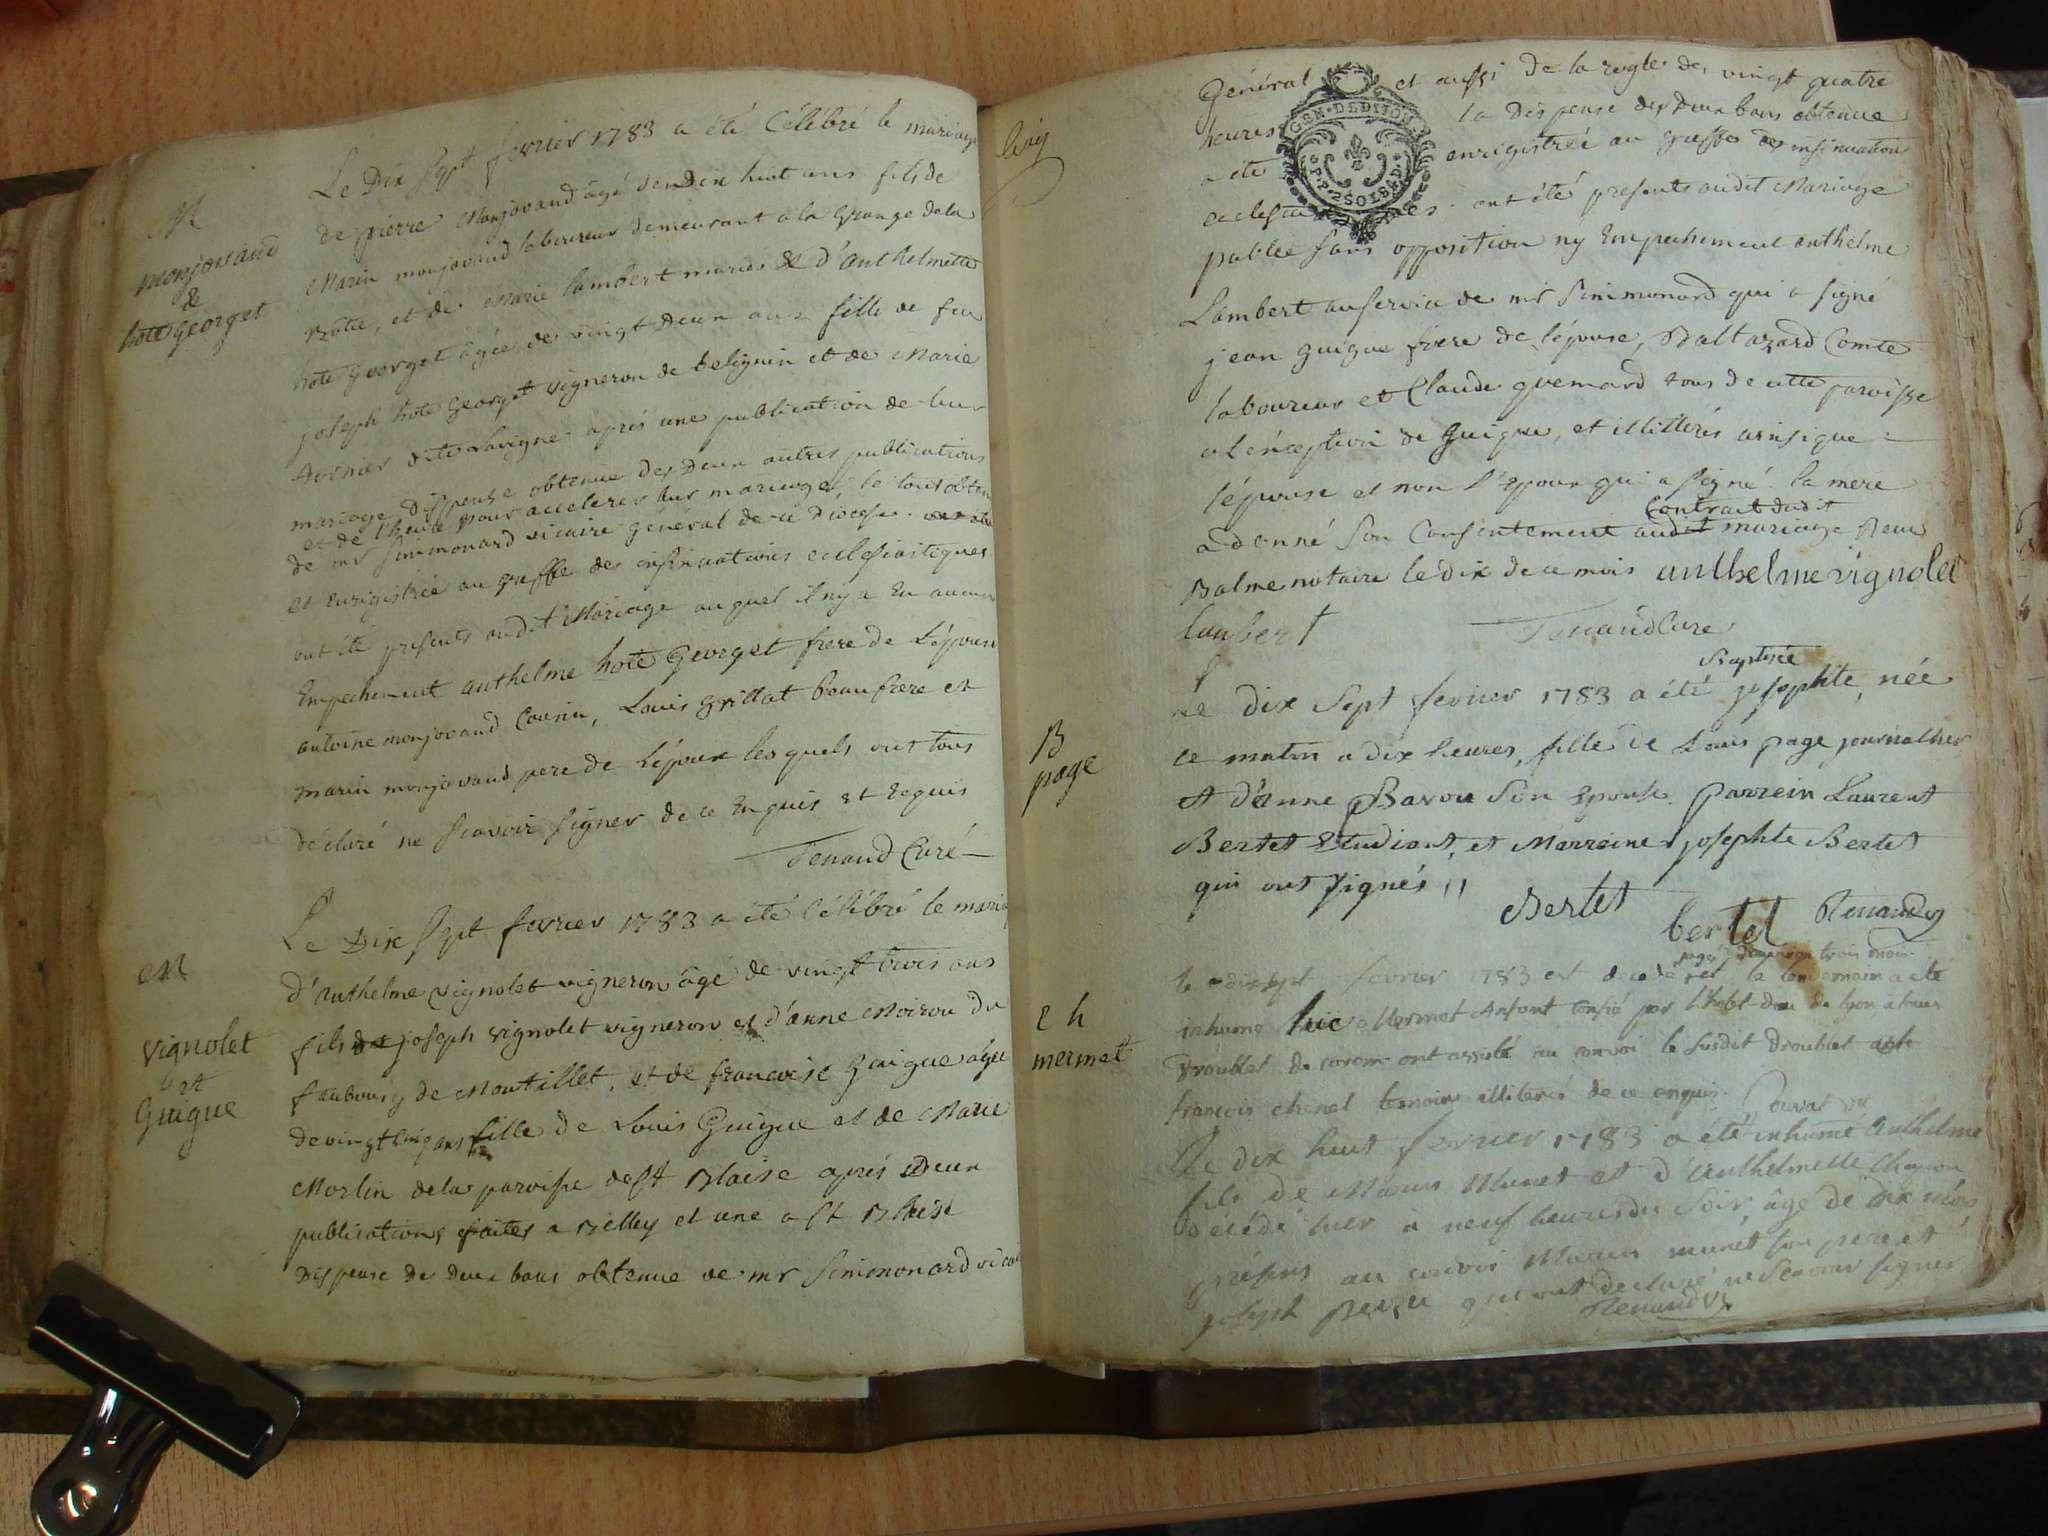 M
monjovand
&
hote georget
Le Dix Sept fevrier 1783 a été Célébré le mariage
de pierre Monjovand âgé de dix huit ans fils de
Marin monjovand laboureur demeurant a la grange de la
et de Marie lambert mariés & d'anthelmette
hote georget âgée de vingt deux ans fille de feu
joseph hote georget vigneron de belignin et de Marie
dite Lavigne après une publication de leur
mariage Dispense obtenue des deux autres publications
et de l'heure pour accelerer leur mariage, le tout obtenu
de mr Simmonard vicaire général de ce Diocese
et Enrigistrée au greffe des insinuations eclesiastiques
ont été présents audit Mariage auquel il ny a Eu aucun
Empechement anthelme hote Georget frere de L'épouse
antoine monjovand Cousin, Louis grillat beaufrere et
marin monjovand pere de L'époux lesquels ont tous
déclaré ne scavoir signer de ce Enquis et requis
Tenand Curé
M
vignolet
et
Guigue
Le Dix Sept fevrier 1783 a été Célébré le mariage
d'Anthelme vignolet vigneron âgé de vingt trois ans
fils de joseph vignolet vigneron et d'anne Moirou du
faubourg de Montillet, et de francoise Guigue agée
de vingt cinq ans fille de Louis Guigue et de Marie
Morlin de la paroisse de St Blaise après Deux
publications faites a Belley et une a St Blaise
Dispense de deux bans obtenue de mr Simmonard vicaire
cinq
Général et aussi de la regle des vingt quatre
heures la Dispense des deux bans obtenue
a été enrigistrée au greffe des insinuation
GEN. DE DIJON
ecclesiastiques ont été presents audit Mariage
publié sans opposition ny Empechement anthelme
Lambert au service de mr Simmonard qui a signé
jean guigue frere de l'épouse, Baltazard Comte
laboureur et Claude guemard tous de cette paroisse
a L'exception de Guigue, et illitterés ainsi que
l'épouse et non L'Epoux qui a signé. la mere
Contrait dudit
a donné son Consentement audit mariage Reçu
Balme notaire le dix de ce mois anthelme vignolet
lambert Tenand Curé
B
page
Baptisée
Le dix Sept fevrier 1783 a été josephte, née
ce matin a dix heures, fille de Louis page journalier
et d'anne Bavou son Epouse. parrein Laurent
Bertet Etudiant, et Marreine josephte Bertet
qui ont signés
Bertet bertet Renaud
2 h
mermet
agé d'environ trois mois
le dix sept fevrier 1783 est decedé et le lendemain a été
inhumé luc Mermet Anfant confié par l'hotel dieu de lyon a
Droublet de coron ont assisté au convoi le susdit Droublet
francois chenel temoins illiterés de ce enquis.
Le dix huit fevrier 1783 a été inhumé Anthelme
fils de Marin Munet et d'Anthelmette Chapuu
décédé hier a neuf heures du soir, âgé de dix mois
présens au convoi Marin munet son pere et
joseph qui ont declaré ne scavoir signer
Renaud